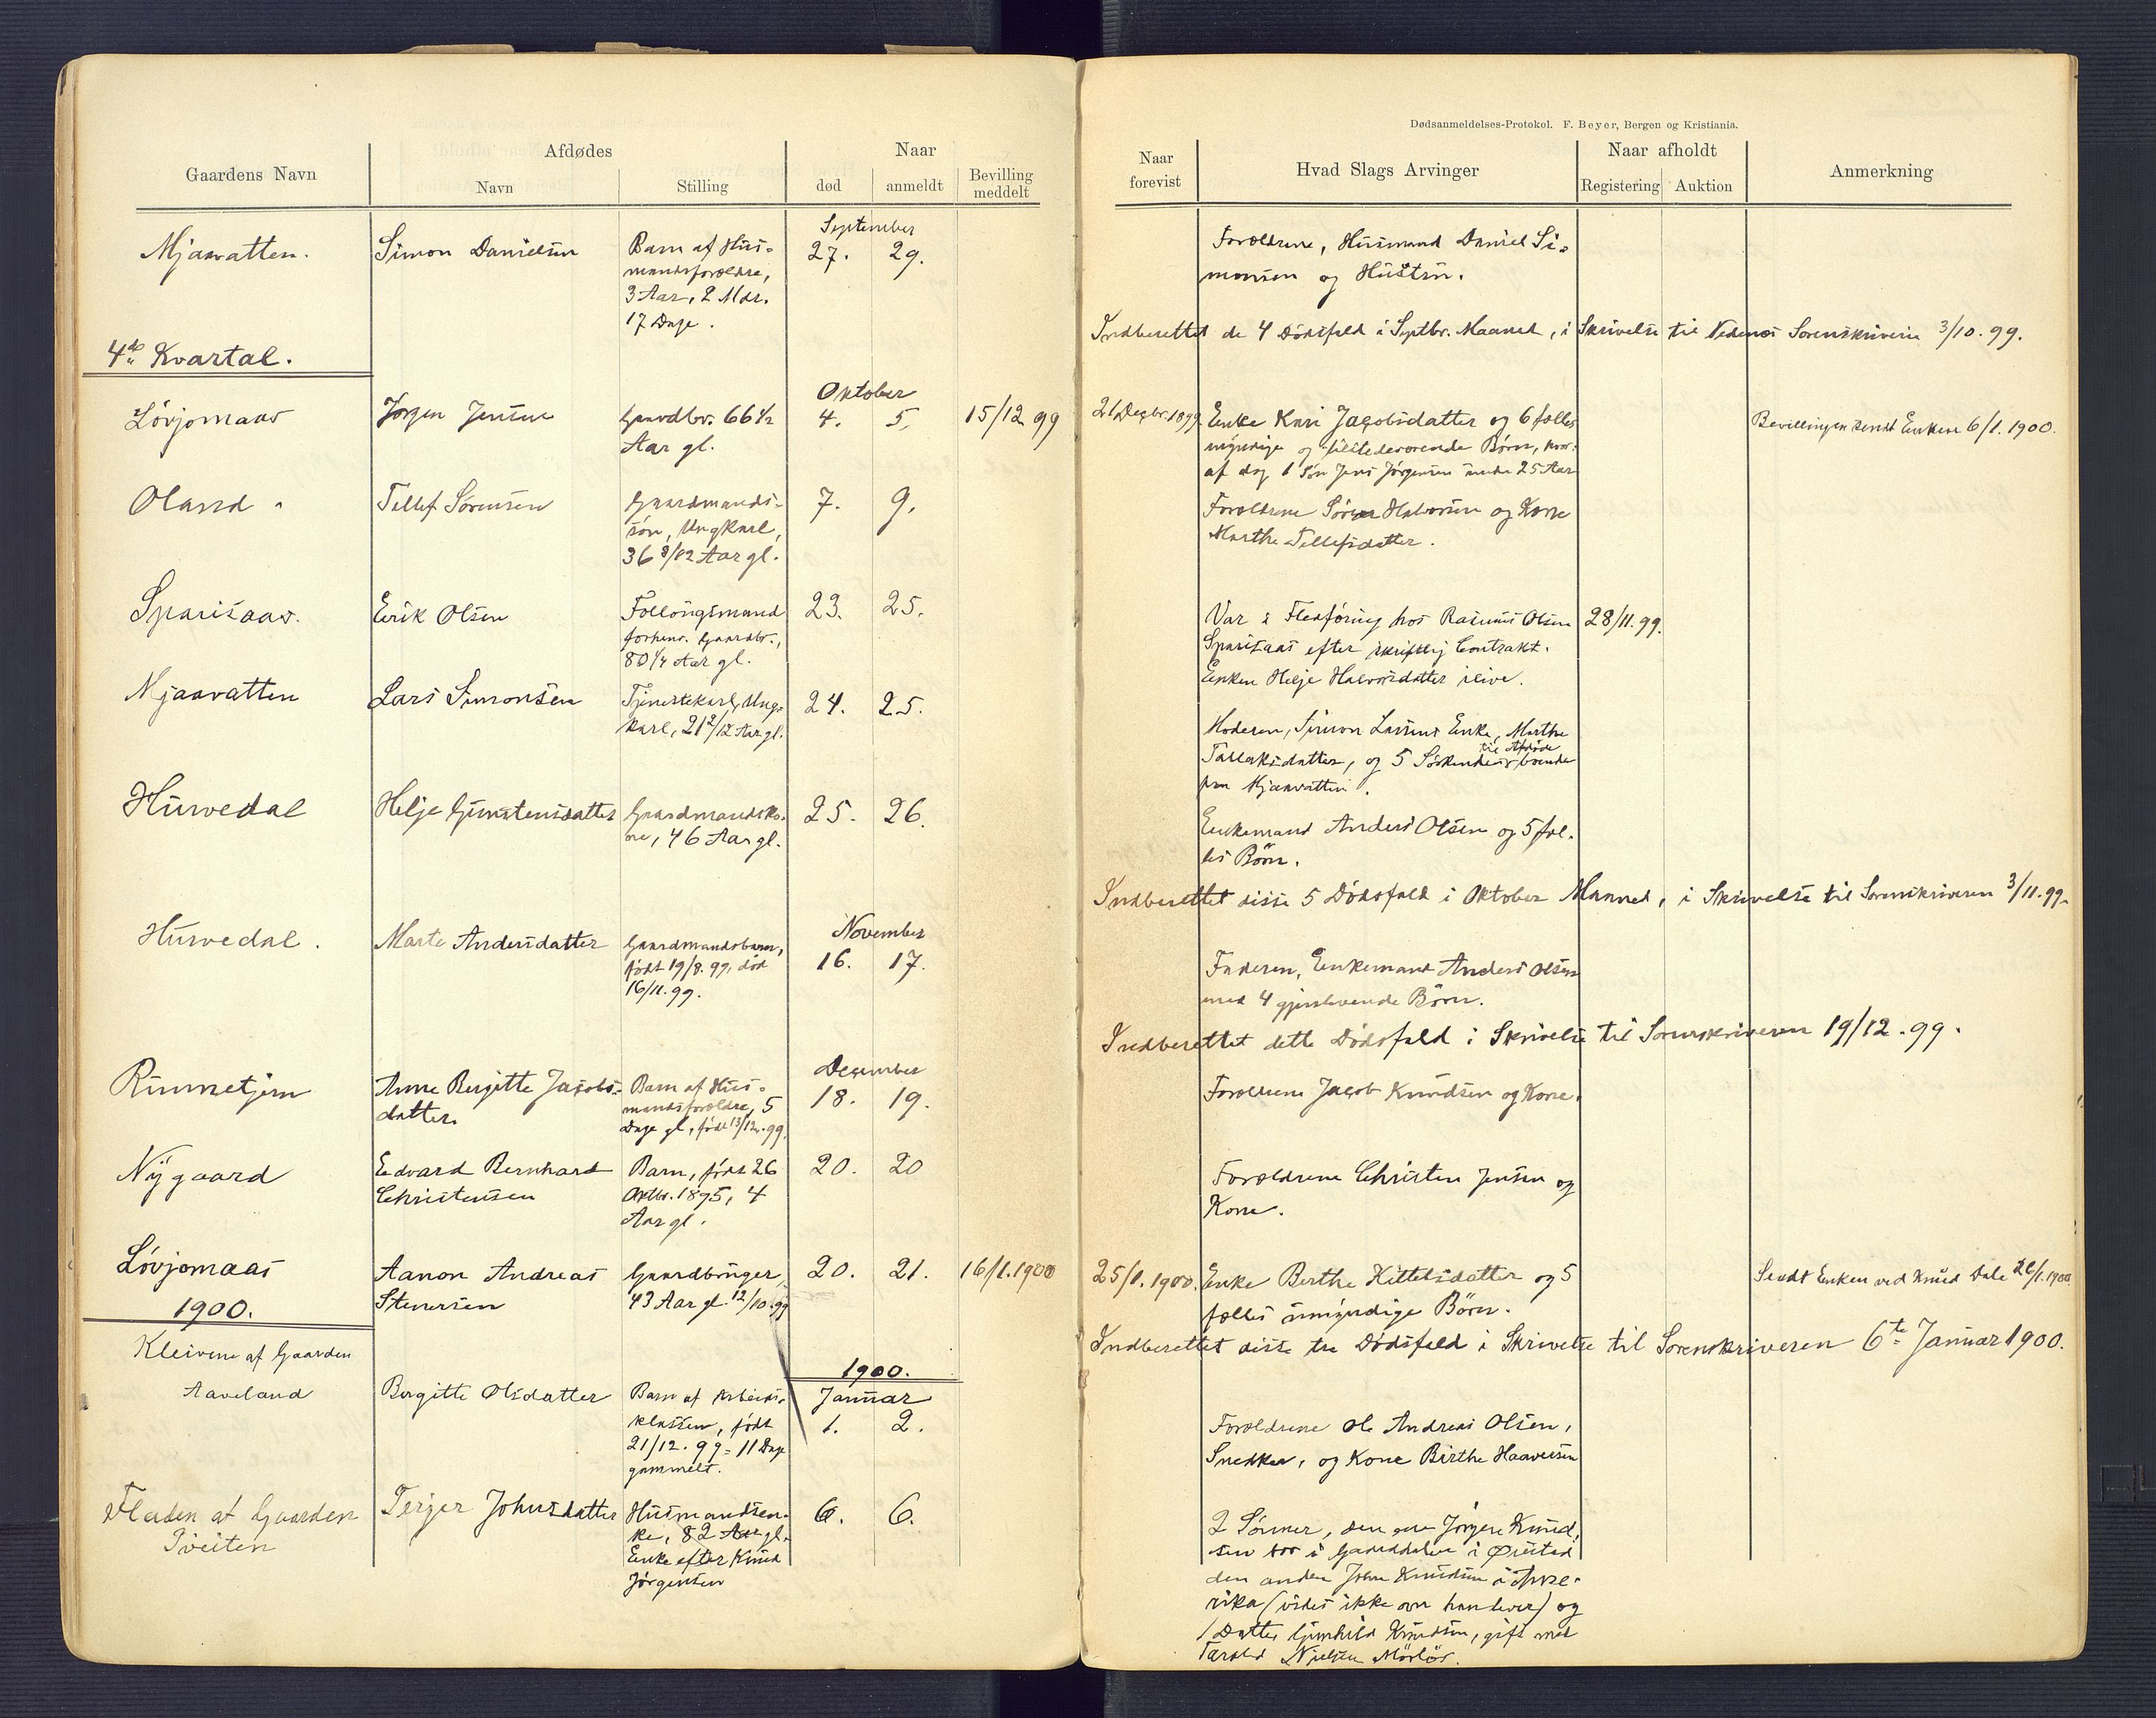 Dødsanmeldelses-Protokol. F. Beyer, Bergen og Kristiania.
Gaardens Navn
Afdødes
Navn
Stilling
Naar
død
anmeldt
Bevilling
meddelt
Naar
forevist
Hvad Slags Arvinger
Naar afholdt
Registering
Auktion
Anmerkning
September
Mjaavatten.
Simon Danielsen
Barn af Hus-
mandsforældre,
3 Aar, 2 Mdr.
17 Dage.
27.
29.
Forældrene, Husmand Daniel Si-
monsen og Hustru.
Indberettet de 4 Dødsfald i Septbr. Maaned, i Skrivelse til Nedenæs Sorenskriveri 3/10. 99.
4de Kvartal.
Oktober
Løvjomaas
Jørgen Jensen
Gaardbr. 66 1/2
Aar gl.
4.
5.
15/12 99
21 Decbr. 1899.
Enke Kari Jacobsdatter og 6 fælles
myndige og tilstedeværende Børn, hvor-
af dog 1 Søn Jens Jørgensen under 25 Aar
Bevillingen sendt Enken 6/1. 1900.
Oland
Tellef Sørensen
Gaardmands-
søn, Ungkarl,
36 3/12 Aar gl.
7.
9.
Forældrene Søren Halvorsen og Kone
Marthe Tellefsdatter.
Sparisaas.
Erik Olsen
Follougsmand
forhenv. Gaardbr.,
80 1/4 Aar gl.
23.
25.
Var i Fledføring hos Rasmus Olsen
Sparisaas efter skriftlig Contrakt.
Enken Helje Halvorsdatter ilive.
28/11. 99.
Mjaavatten
Lars Simonsen
Tjenestekarl, Ung-
karl, 21 2/12 Aar gl.
24.
25.
Moderen, Simon Larsens Enke, Marthe
Tallaksdatter, og 5 Søskende til Afdøde boende
paa Mjaavatten.
Hurvedal
Helje Gunstensdatter
Gaardmandsko-
ne, 46 Aar gl.
25.
26.
Enkemand Anders Olsen og 5 fæl-
les Børn.
Indberettet disse 5 Dødsfald i Oktober Maaned, i Skrivelse til Sorenskriveren 3/11. 99.
November
Hurvedal.
Marte Andersdatter
Gaardmandsbarn,
født 19/8. 99, død
16/11. 99.
16.
17.
Faderen, Enkemand Anders Olsen
med 4 gjenlevende Børn.
Indberettet dette Dødsfald i Skrivelse til Sorenskriveren 19/12. 99.
December
Rinnetjern
Anne Birgitte Jacobs-
datter.
Barn af Hus-
mandsforældre, 5
Dage gl., født 13/12. 99.
18.
19.
Forældrene Jacob Knudsen og Kone.
Nygaard
Edvard Bernhard
Christensen
Barn, født 26
Oktbr. 1895, 4
Aar gl.
20.
20
Forældrene Christen Jensen og
Kone.
Løvjomaas
Aanon Andreas
Stenersen
Gaardbruger,
43 Aar gl. 12/10. 99
20.
21.
16/1. 1900
25/1. 1900.
Enke Berthe Kittelsdatter og 5
fælles umyndige Børn.
Sendt Enken ved Knud Dale 26/1. 1900
Indberettet disse tre Dødsfald i Skrivelse til Sorenskriveren 6te Januar 1900.
1900.
1900.
Januar
Kleivene af Gaarden
Aaveland
Birgitte Olsdatter
Barn af Arbeids-
klassen, født
21/12. 99 = 11 Dage
gammelt.
1.
2.
Forældrene Ole Andreas Olsen,
Snedker, og Kone Birthe Haaversen
Fladen af Gaarden
Tveiten
Terjer Johnsdatter
Husmandsen-
ke, 82 Aar gl.
Enke efter Knud
Jørgensen
6.
6.
2 Sønner, den ene Jørgen Knud-
sen bor i Gaaseddalen i Øiestad
den anden John Knudsen i Ame-
rika (vides ikke om han lever) og
1 Datter Gunhild Knudsen, gift med
Tarald Nielsen Mørfjær.